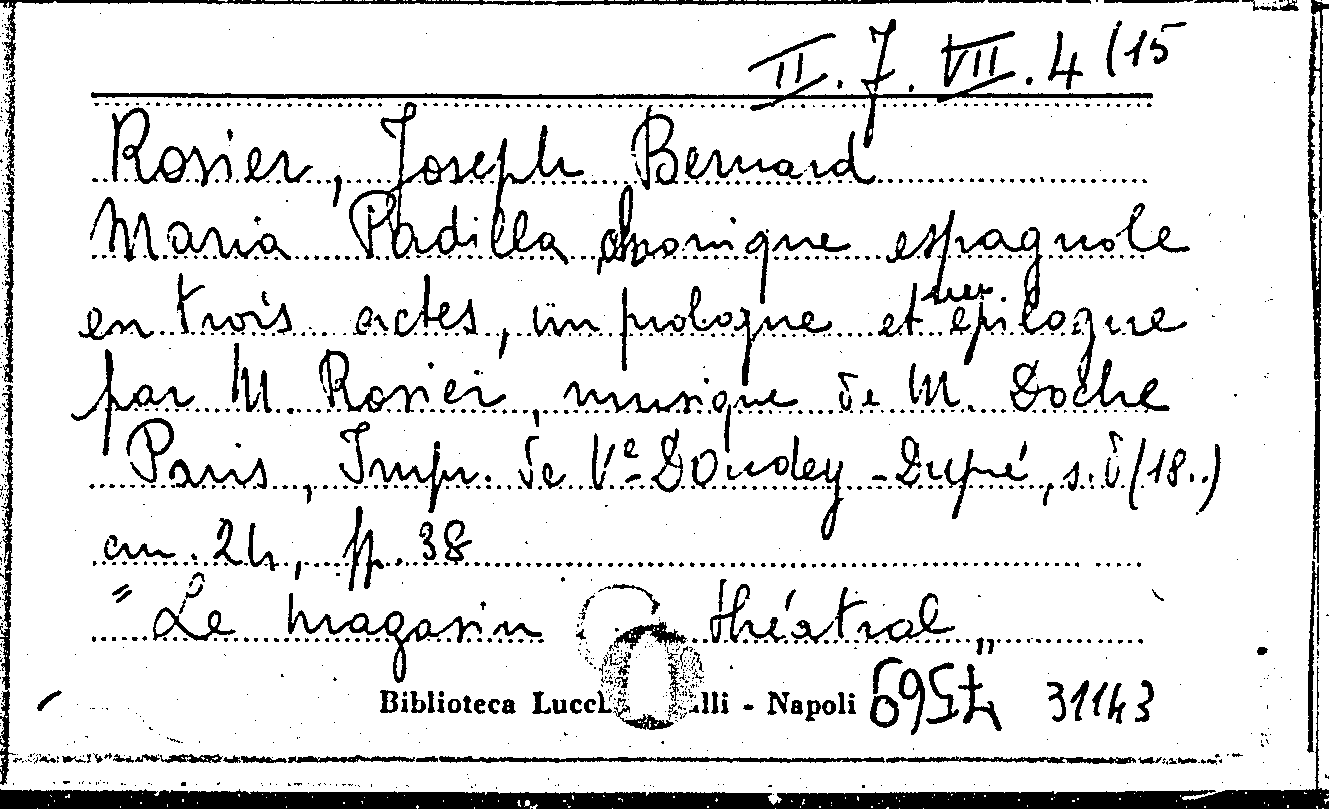 II. 7. VII. 4 (15
Rosier, Joseph Bernard
Maria Padilla chronique espagnole
en trois actes, un prologue et un épilogue
par M. Rosier, musique de M. Doche
Paris, Impr. de Ve Dondey-Dupré, s. d (18..)
cm. 24, pp. 38
"Le magasin théatral"
Biblioteca Lucch lli - Napoli 31143